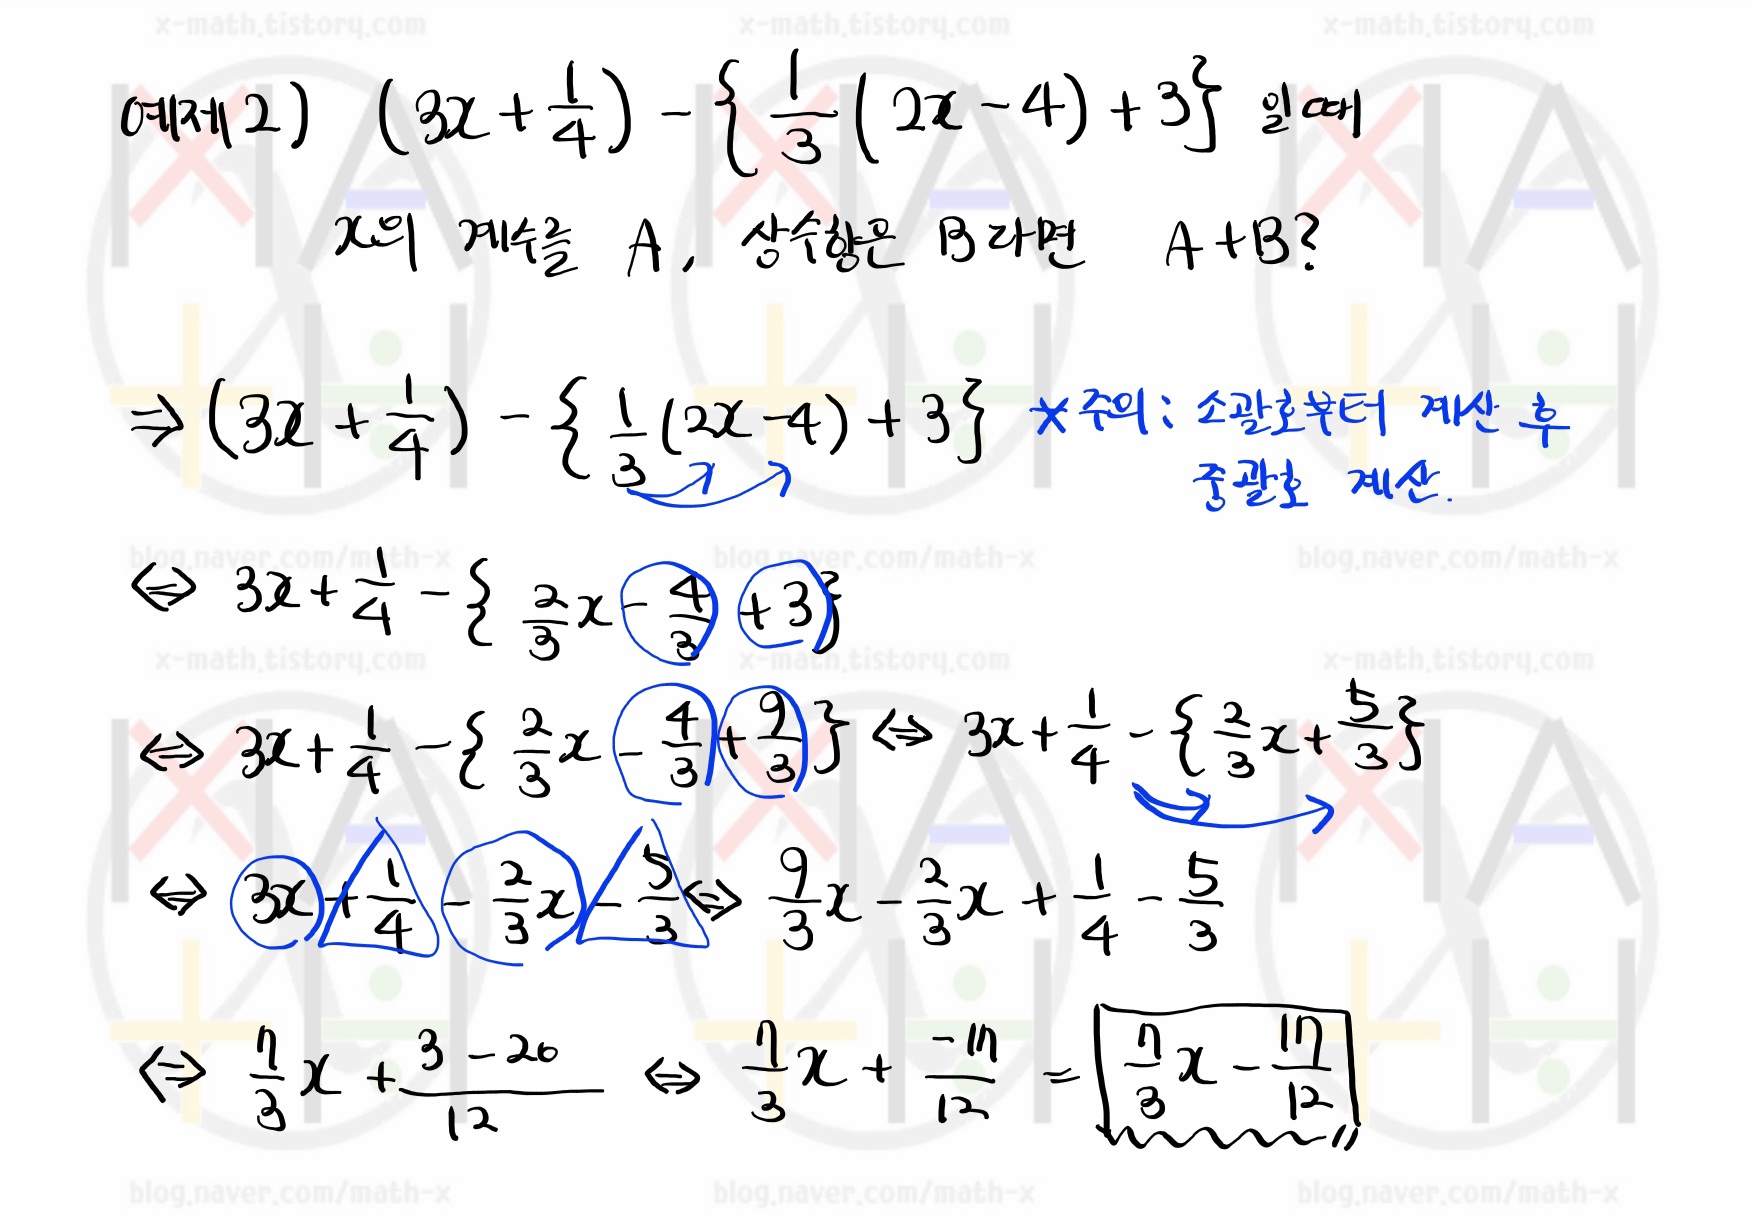 x-math.tistory.com x-math.tistory.com x-math.tistory.com
예제2) (3x + 1/4) - { 1/3 (2x - 4) + 3} 일 때
x의 계수를 A, 상수항은 B라면 A+B?
⇒ (3x + 1/4) - { 1/3 (2x - 4) + 3} *주의: 소괄호부터 계산 후
중괄호 계산.
blog.naver.com/math-x blog.naver.com/math-x blog.naver.com/math-x
⇔ 3x + 1/4 - { 2/3 x - 4/3 + 3}
x-math.tistory.com x-math.tistory.com x-math.tistory.com
⇔ 3x + 1/4 - { 2/3 x - 4/3 + 9/3 } ⇔ 3x + 1/4 - { 2/3 x + 5/3 }
⇔ 3x + 1/4 - 2/3 x - 5/3 ⇔ 9/3 x - 2/3 x + 1/4 - 5/3
⇔ 7/3 x + (3 - 20)/12 ⇔ 7/3 x + -17/12 = 7/3 x - 17/12
blog.naver.com/math-x blog.naver.com/math-x blog.naver.com/math-x